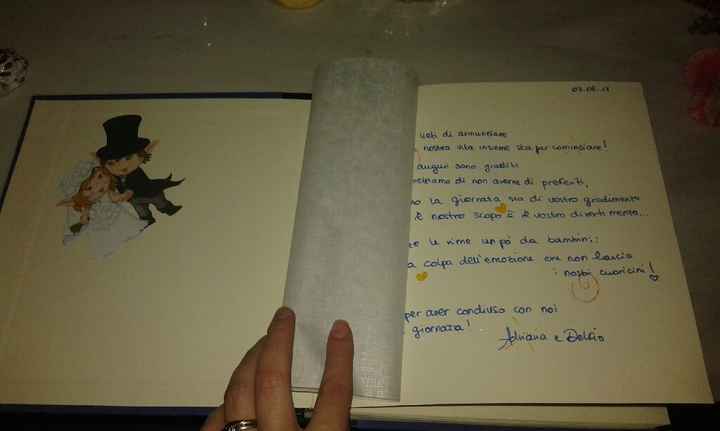 lieti di annunciare
nostra vita insieme sta per cominciare!
auguri sono graditi
di non averne di preferiti,
la giornata sia di vostro gradimento
il nostro scopo è il vostro divertimento...
le rime un po' da bambini:
colpa dell'emozione che non lascia
i nostri cuoricini!
per aver condiviso con noi
giornata!
Adriana e